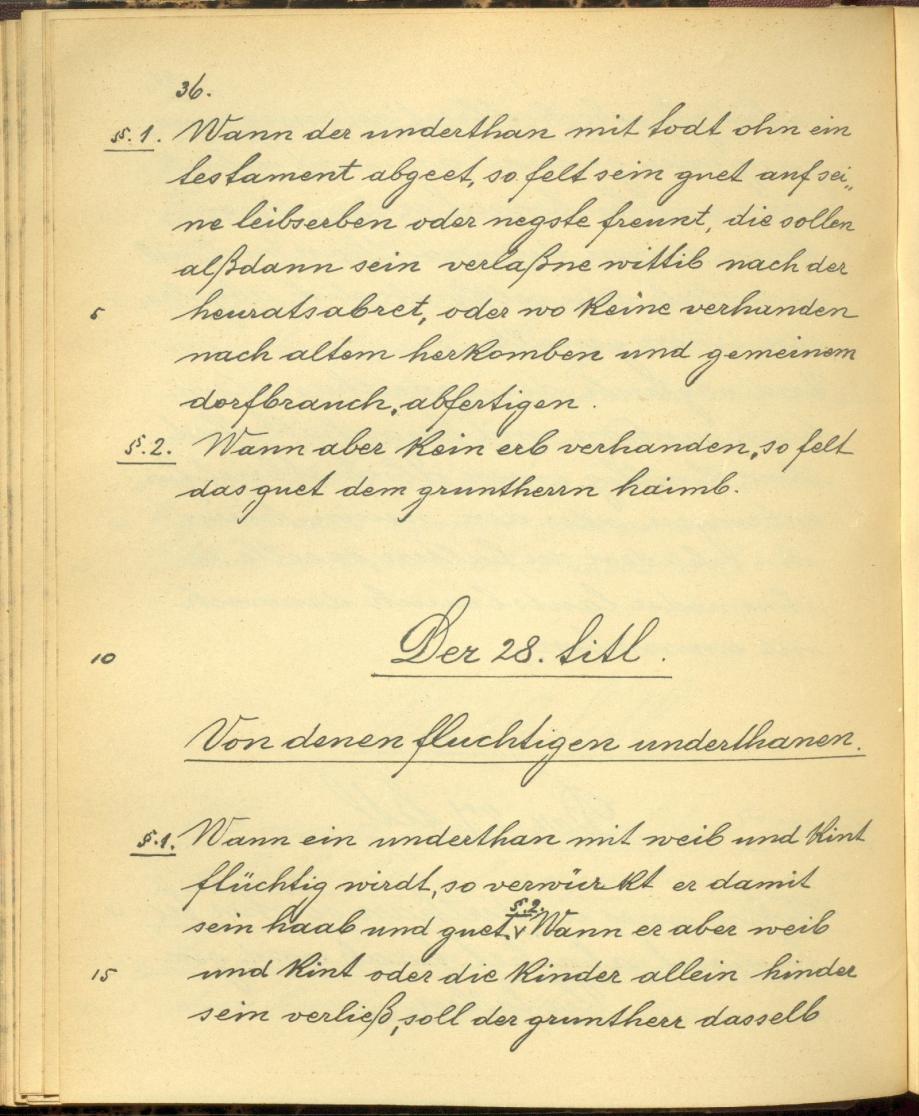 36.
§.1. Wann der underthan mit todt ohn ein
testament abgeet, so felt sein guet auf sei„
ne leibserben oder negste freunt, die sollen
alßdann sein verlaßne wittib nach der
5 heuratsabret, oder wo keine verhanden
nach altem herkomben und gemeinem
dorfbrauch, abfertigen.
§.2. Wann aber kein erb verhanden, so felt
das guet dem gruntherrn haimb.
10 Der 28. titl.
Von denen fluchtigen underthanen.
§.1. Wann ein underthan mit weib und kint
flüchtig wirdt, so verwürkt er damit
sein haab und guet. §.2. Wann er aber weib
15 und kint oder die kinder allein hinder
sein verließ, soll der gruntherr dasselb